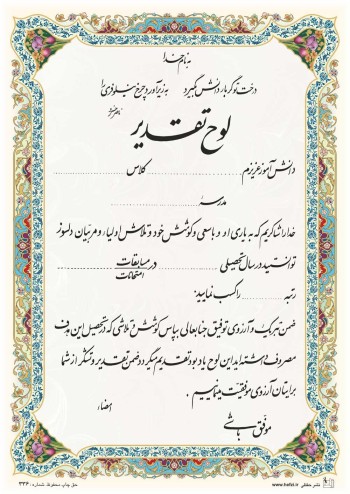 به نام خدا
درخت تو گر بار دانش بگیرد به زیر آوری چرخ نیلوفری را
ناصر خسرو
لوح تقدیر
دانش آموز عزیزم کلاس
مدرسه
خدا را شاکریم که به یاری او و با سعی و کوشش خود و تلاش اولیاء و مربیان دلسوز
توانستید در سال تحصیلی در مسابقات
امتحانات
رتبه را کسب نمایید.
ضمن تبریک و آرزوی توفیق جنابعالی بپاس کوشش و تلاشی که در تحصیل این هدف
مصروف داشته اید این لوح یادبود تقدیم میگردد ضمن تقدیر و تشکر از شما
برایتان آرزوی موفقیت مینماییم.
امضاء:
موفق باشی
حق چاپ محفوظ. شماره: ۳۲۶
www.hefzi.ir نشر حفظی